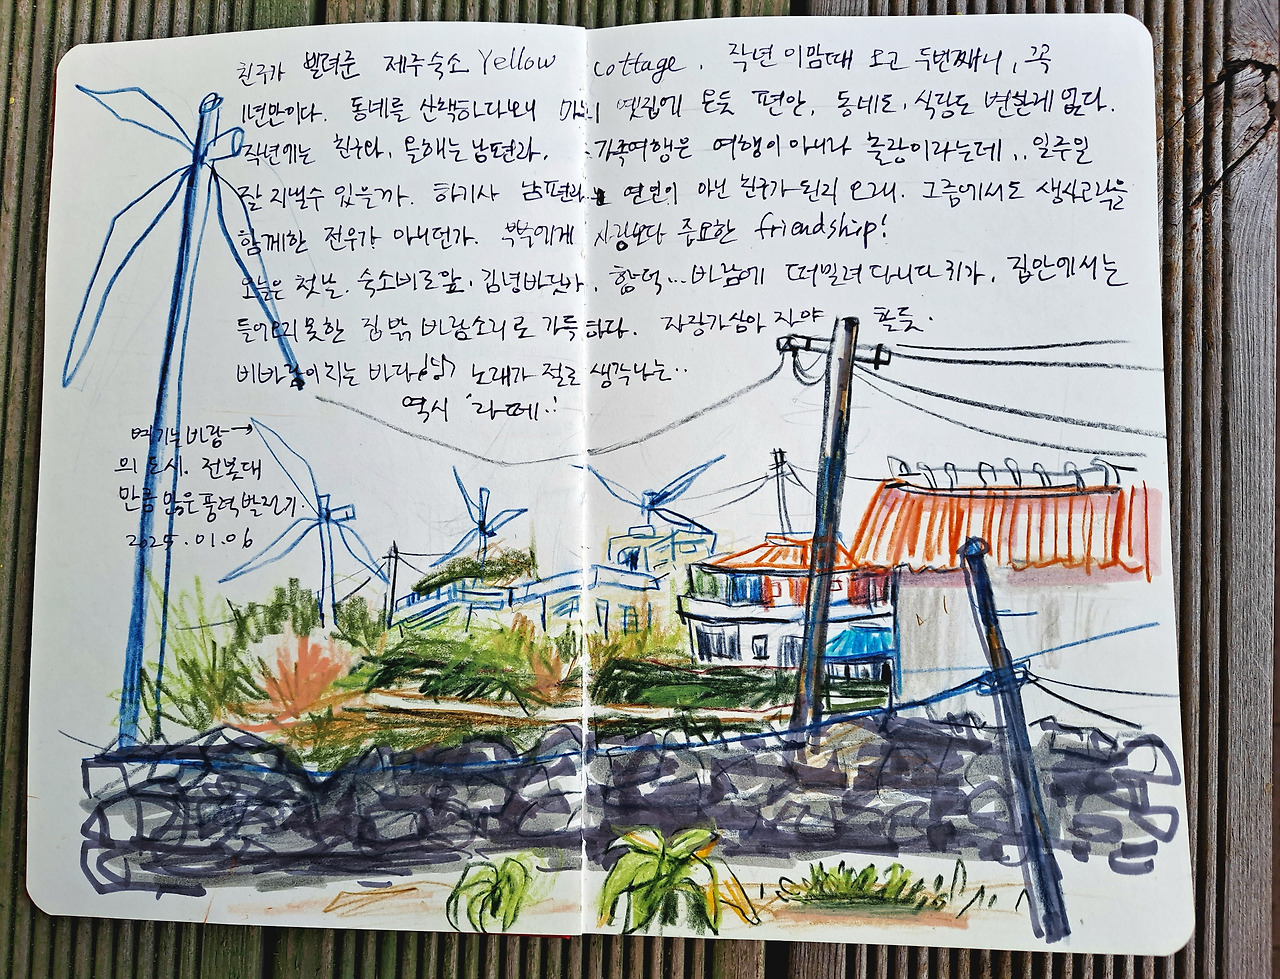 친구가 빌려준 제주숙소 Yellow cottage, 작년 이맘때 오고 두번째니, 꼭
1년만이다. 동네를 산책하다보니 마치 옛집에 온듯 편안, 동네도, 식당도 변한게 없다.
작년에는 친구와, 올해는 남편과. 가족여행은 여행이 아니라 출장이라는데.. 일주일
잘 지낼수 있을까. 하기사 남편과는 연인이 아닌 친구가 된지 오래. 그름에서도 생사고락을
함께한 전우가 아니던가. 부부에게 사랑보다 중요한 friendship!
오늘은 첫날. 숙소바로앞, 김녕바닷가, 함덕... 바람에 떠밀려 다니다 귀가, 집안에서는
들어오지 못한 집 밖 바람소리로 가득하다. 자장가삼아 자야 할듯.
비바람이 치는 바다 노래가 절로 생각나는..
역시 '라떼..!
여기는 바람→
의 도시. 전봇대
만큼 많은 풍력발전기.
2025.01.06